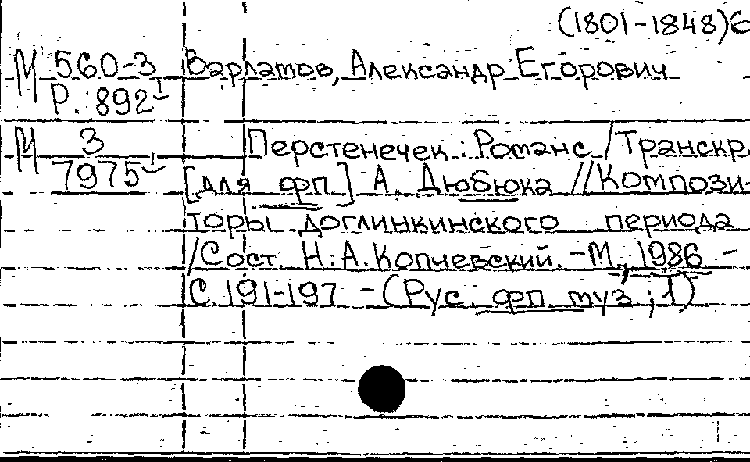 (1801-1848)
М 560-3 Варламов, Александр Егорович
Р. 892
М 3 Перстенечек: Романс / Транскр.
7975 [для фп.] А. Дюбюка // Компози-
торы доглинкинского периода
/ Сост. Н.А. Копчевский. - М., 1986 -
С. 191-197 - (Рус. фп. муз.; 1)